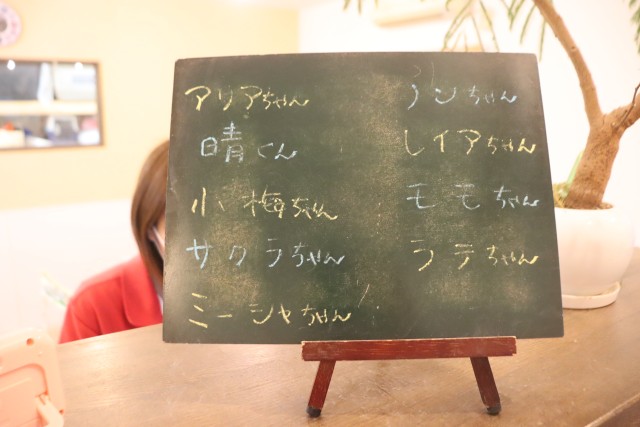 アリアちゃん
晴くん
小梅ちゃん
サクラちゃん
ミーシャちゃん
ちゃん
レイアちゃん
モモちゃん
ラテちゃん